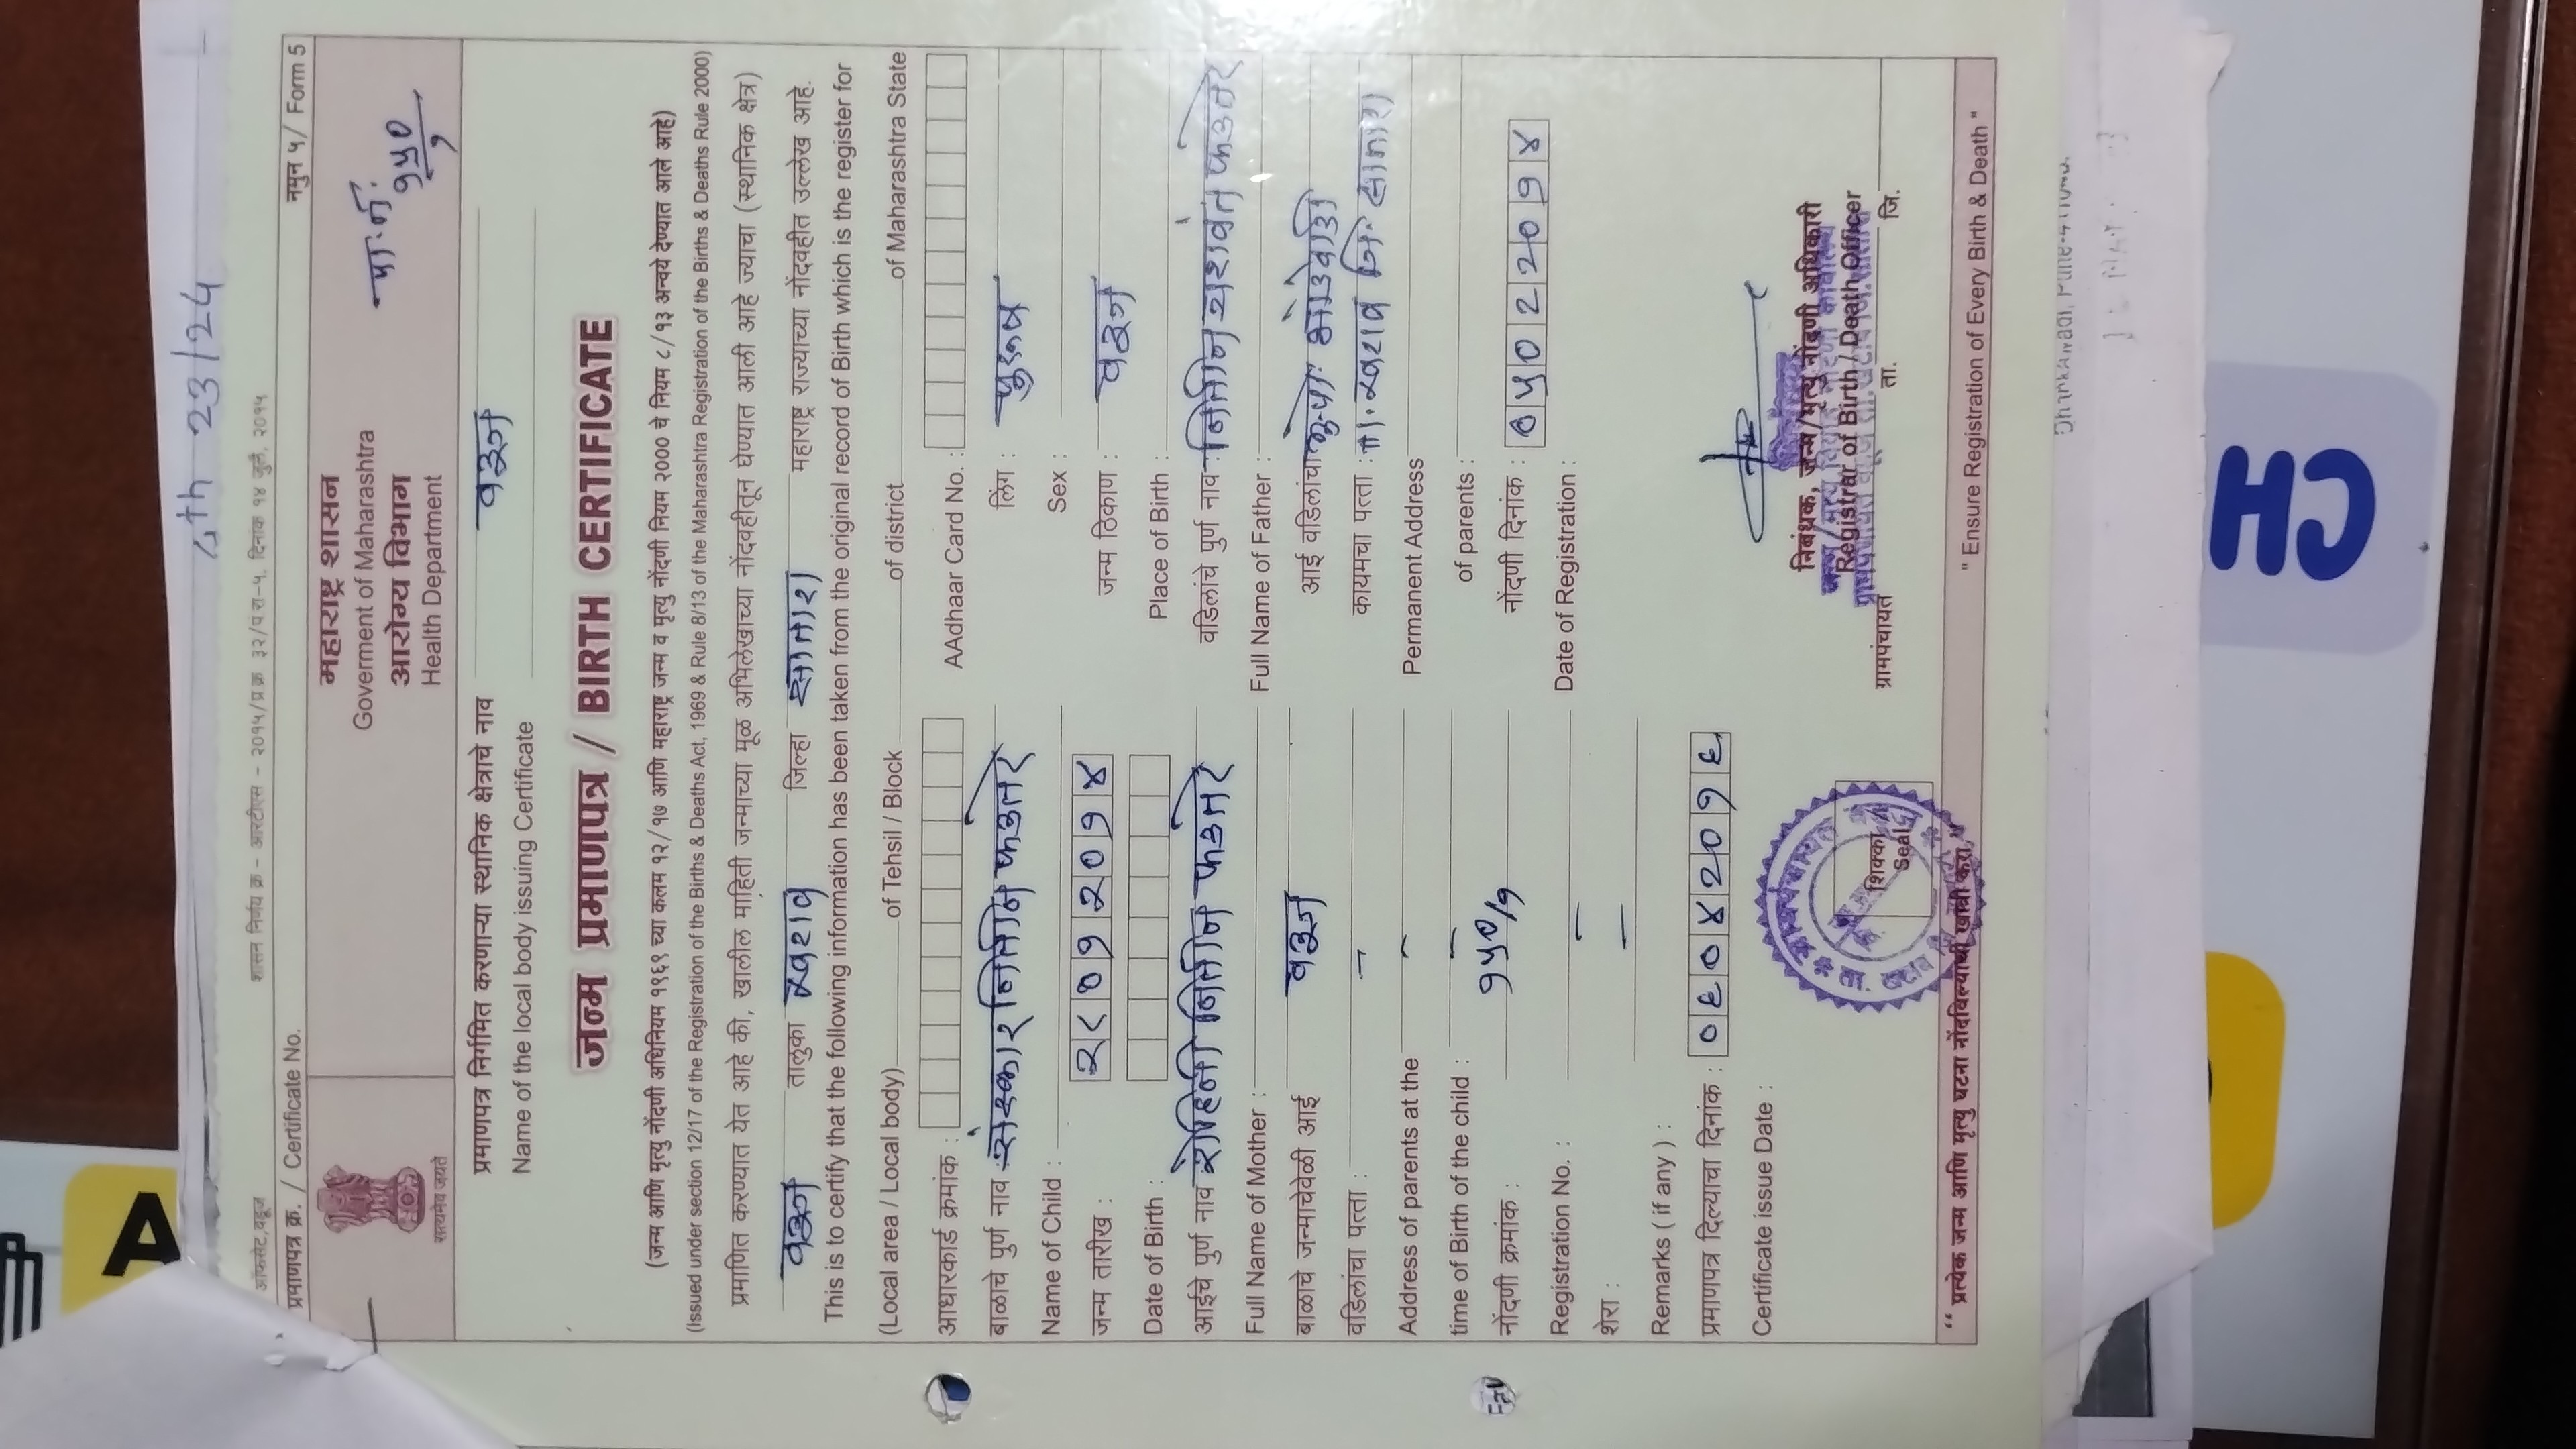 4th 23/24
ऑफसेट, वडूज शासन निर्णय क्र - आरटीएस - २०१५/प्र क्र ३२/प.रा-५, दिनांक १४ जुलै, २०१५
प्रमाणपत्र क्र. / Certificate No. नमुन ५/ Form 5
महाराष्ट्र शासन
Goverment of Maharashtra
आरोग्य विभाग
Health Department
सत्यमेव जयते
पा.नं. १५०/१
प्रमाणपत्र निर्गमित करणाऱ्या स्थानिक क्षेत्राचे नाव वडूज
Name of the local body issuing Certificate
जन्म प्रमाणपत्र / BIRTH CERTIFICATE
(जन्म आणि मृत्यु नोंदणी अधिनियम १९६९ च्या कलम १२/१७ आणि महाराष्ट्र जन्म व मृत्यु नोंदणी नियम २००० चे नियम ८/१३ अन्वये देण्यात आले आहे)
(Issued under section 12/17 of the Registration of the Births & Deaths Act, 1969 & Rule 8/13 of the Maharashtra Registration of the Births & Deaths Rule 2000)
प्रमाणित करण्यात येत आहे की, खालील माहिती जन्माच्या मूळ अभिलेखाच्या नोंदवहीतून घेण्यात आली आहे ज्याचा (स्थानिक क्षेत्र)
वडूज तालुका खटाव जिल्हा सातारा महाराष्ट्र राज्याच्या नोंदवहीत उल्लेख आहे.
This is to certify that the following information has been taken from the original record of Birth which is the register for
(Local area / Local body) of Tehsil / Block of district of Maharashtra State
आधारकार्ड क्रमांक : AAdhaar Card No. :
बाळाचे पुर्ण नाव : संस्कार नितीन फडतरे लिंग : पुरूष
Name of Child : Sex :
जन्म तारीख : २८०१२०१४ जन्म ठिकाण : वडूज
Date of Birth : Place of Birth :
आईचे पुर्ण नाव रोहिणी नितीन फडतरे वडिलांचे पुर्ण नाव : नितीन यशवंत फडतरे
Full Name of Mother : Full Name of Father :
बाळाचे जन्माचेवेळी आई वडूज आई वडिलांचा मु.पो.
वडिलांचा पत्ता : - कायमचा पत्ता : ता. खटाव जि. सातारा
Address of parents at the - Permanent Address
time of Birth of the child : - of parents :
नोंदणी क्रमांक : १५०/१ नोंदणी दिनांक : ०५०२२०१४
Registration No. : Date of Registration :
शेरा : -
Remarks ( if any ) : -
प्रमाणपत्र दिल्याचा दिनांक : ०६०४२०१६
Certificate issue Date :
शिक्का
Seal
निबंधक, जन्म/मृत्यु नोंदणी अधिकारी
Registrar of Birth / Death Officer
ग्रामपंचायत ता. जि.
“ प्रत्येक जन्म आणि मृत्यु घटना नोंदविल्याची खात्री करा. ” " Ensure Registration of Every Birth & Death "